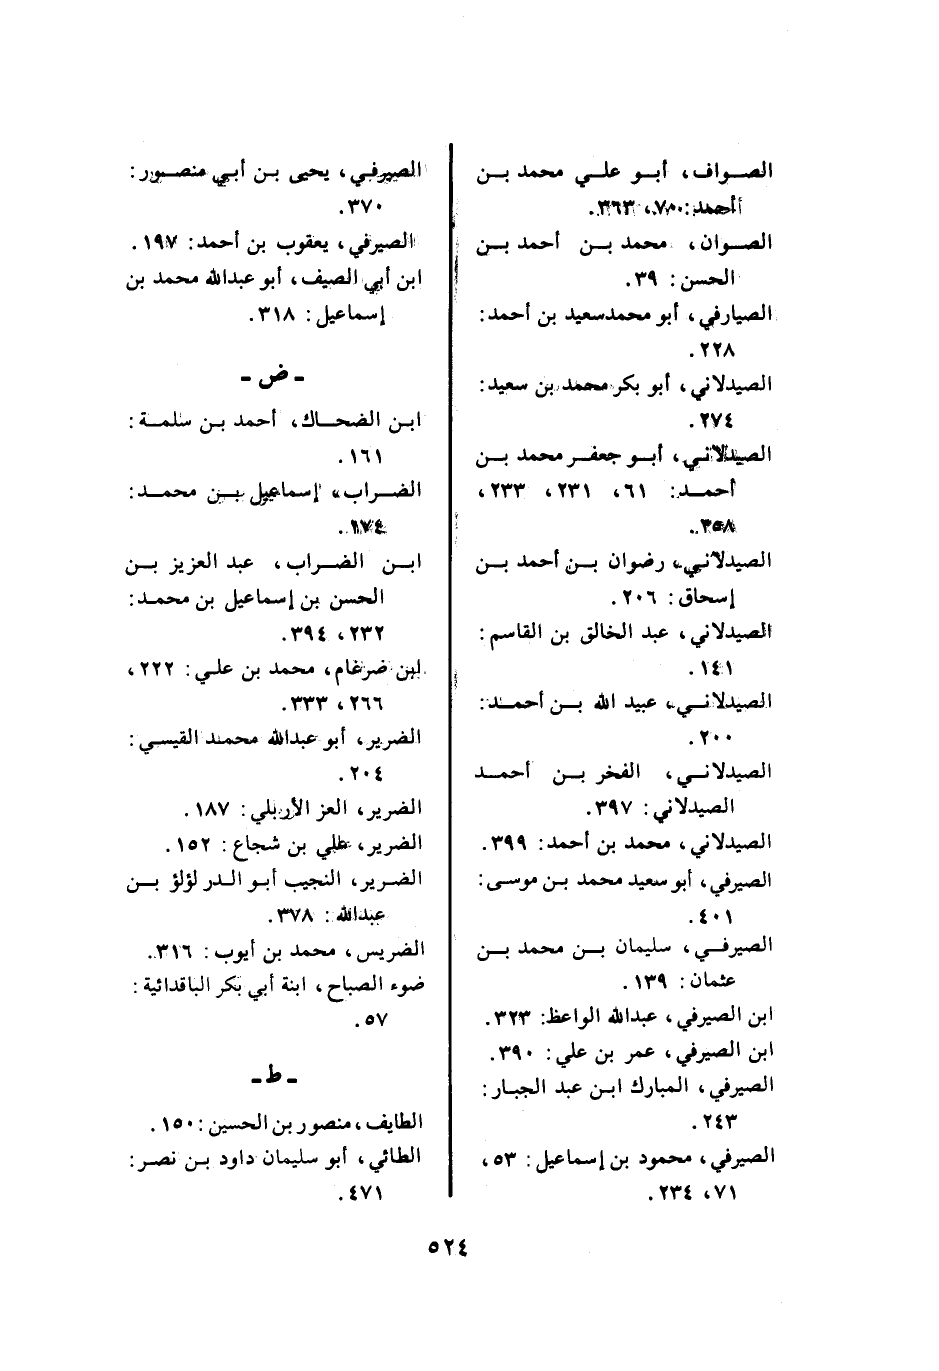 الصواف، أبو علي محمد بن
أحمد: ٧٠، ٣٦٣.
الصوان، محمد بن أحمد بن
الحسن: ٣٩.
الصيارفي، أبو محمدسعيد بن أحمد:
٢٢٨.
الصيدلاني، أبو بكر محمد بن سعيد:
٢٧٤.
الصيدلاني، أبو جعفر محمد بن
أحمد: ٦١، ٢٣١، ٢٣٣،
٣٥٨.
الصيدلاني، رضوان بن أحمد بن
إسحاق: ٢٠٦.
الصيدلاني، عبد الخالق بن القاسم:
١٤١.
الصيدلاني، عبيد الله بن أحمد:
٢٠٠.
الصيدلاني، الفخر بن أحمد
الصيدلاني: ٣٩٧.
الصيدلاني، محمد بن أحمد: ٣٩٩.
الصيرفي، أبو سعيد محمد بن موسى:
٤٠١.
الصيرفي، سليمان بن محمد بن
عثمان: ١٣٩.
ابن الصيرفي، عبدالله الواعظ: ٣٢٣.
ابن الصيرفي، عمر بن علي: ٣٩٠.
الصيرفي، المبارك ابن عبد الجبار:
٢٤٣.
الصيرفي، محمود بن إسماعيل: ٥٣،
٧١، ٢٣٤.
الصيرفي، يحيى بن أبي منصور:
٣٧٠.
الصيرفي، يعقوب بن أحمد: ١٩٧.
ابن أبي الصيف، أبو عبدالله محمد بن
إسماعيل: ٣١٨.
- ض -
ابن الضحاك، أحمد بن سلمة:
١٦١.
الضراب، إسماعيل بن محمد:
١٧٤.
ابن الضراب، عبد العزيز بن
الحسن بن إسماعيل بن محمد:
٢٣٢، ٣٩٤.
ابن ضرغام، محمد بن علي: ٢٢٢،
٢٦٦، ٣٣٣.
الضرير، أبو عبدالله محمد القيسي:
٢٠٤.
الضرير، العز الأربلي: ١٨٧.
الضرير، علي بن شجاع: ١٥٢.
الضرير، النجيب أبو الدر لؤلؤ بن
عبدالله: ٣٧٨.
الضريس، محمد بن أيوب: ٣١٦.
ضوء الصباح، ابنة أبي بكر الباقدائية:
٥٧.
- ط -
الطايف، منصور بن الحسين: ١٥٠.
الطائي، أبو سليمان داود بن نصر:
٤٧١.
٥٢٤